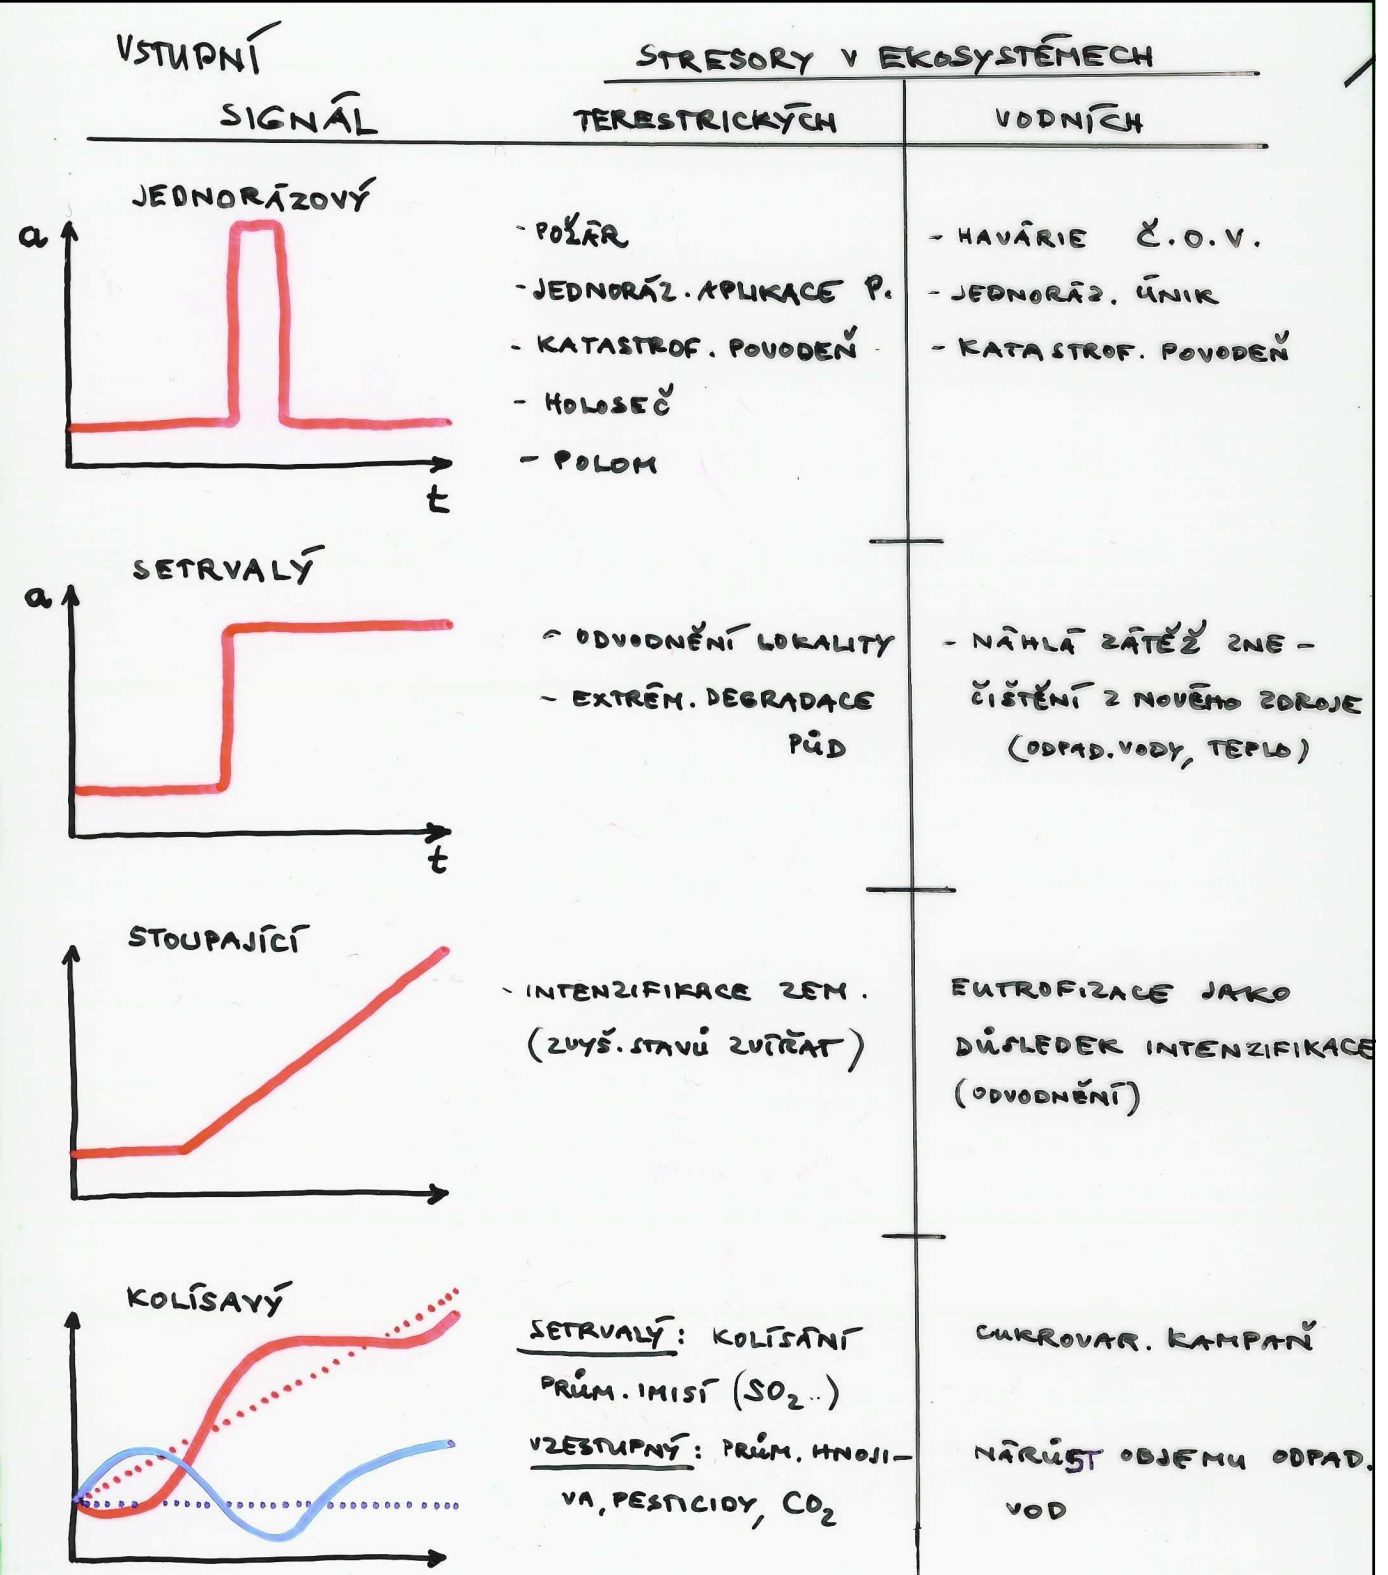 VSTUPNÍ
SIGNÁL
STRESORY V EKOSYSTÉMECH
TERESTRICKÝCH
VODNÍCH
JEDNORÁZOVÝ
a
t
- POŽÁR
- JEDNORÁZ. APLIKACE P.
- KATASTROF. POVODEŇ
- HOLOSEČ
- POLOM
- HAVÁRIE Č.O.V.
- JEDNORÁZ. ÚNIK
- KATASTROF. POVODEŇ
SETRVALÝ
a
t
- ODVODNĚNÍ LOKALITY
- EXTRÉM. DEGRADACE
PŮD
- NÁHLÁ ZÁTĚŽ ZNE-
ČIŠTĚNÍ Z NOVÉHO ZDROJE
(ODPAD. VODY, TEPLO)
STOUPAJÍCÍ
- INTENZIFIKACE ZEM.
(ZVYŠ. STAVŮ ZVÍŘAT)
EUTROFIZACE JAKO
DŮSLEDEK INTENZIFIKACE
(ODVODNĚNÍ)
KOLÍSAVÝ
SETRVALÝ: KOLÍSÁNÍ
PRŮM. IMISÍ (SO₂..)
VZESTUPNÝ: PRŮM. HNOJI-
VA, PESTICIDY, CO₂
CUKROVAR. KAMPAŇ
NÁRŮST OBJEMU ODPAD.
VOD